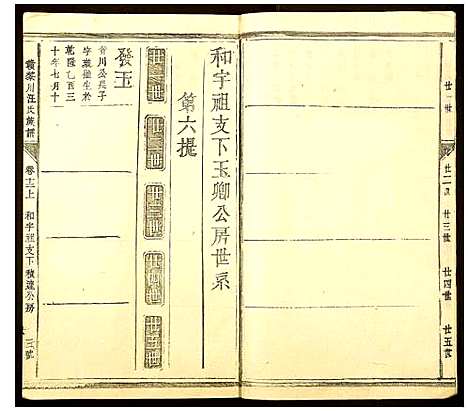 廿一世
廿二世
廿三世
廿四世
廿五世
和字祖支下玉卿公房世系
第六提
廿一世
廿二世
廿三世
廿四世
廿五世
發玉
晉川公長子
乾隆乙酉三
十年七月十
汪氏族譜
卷十三上
和字祖支下積達公房
三號